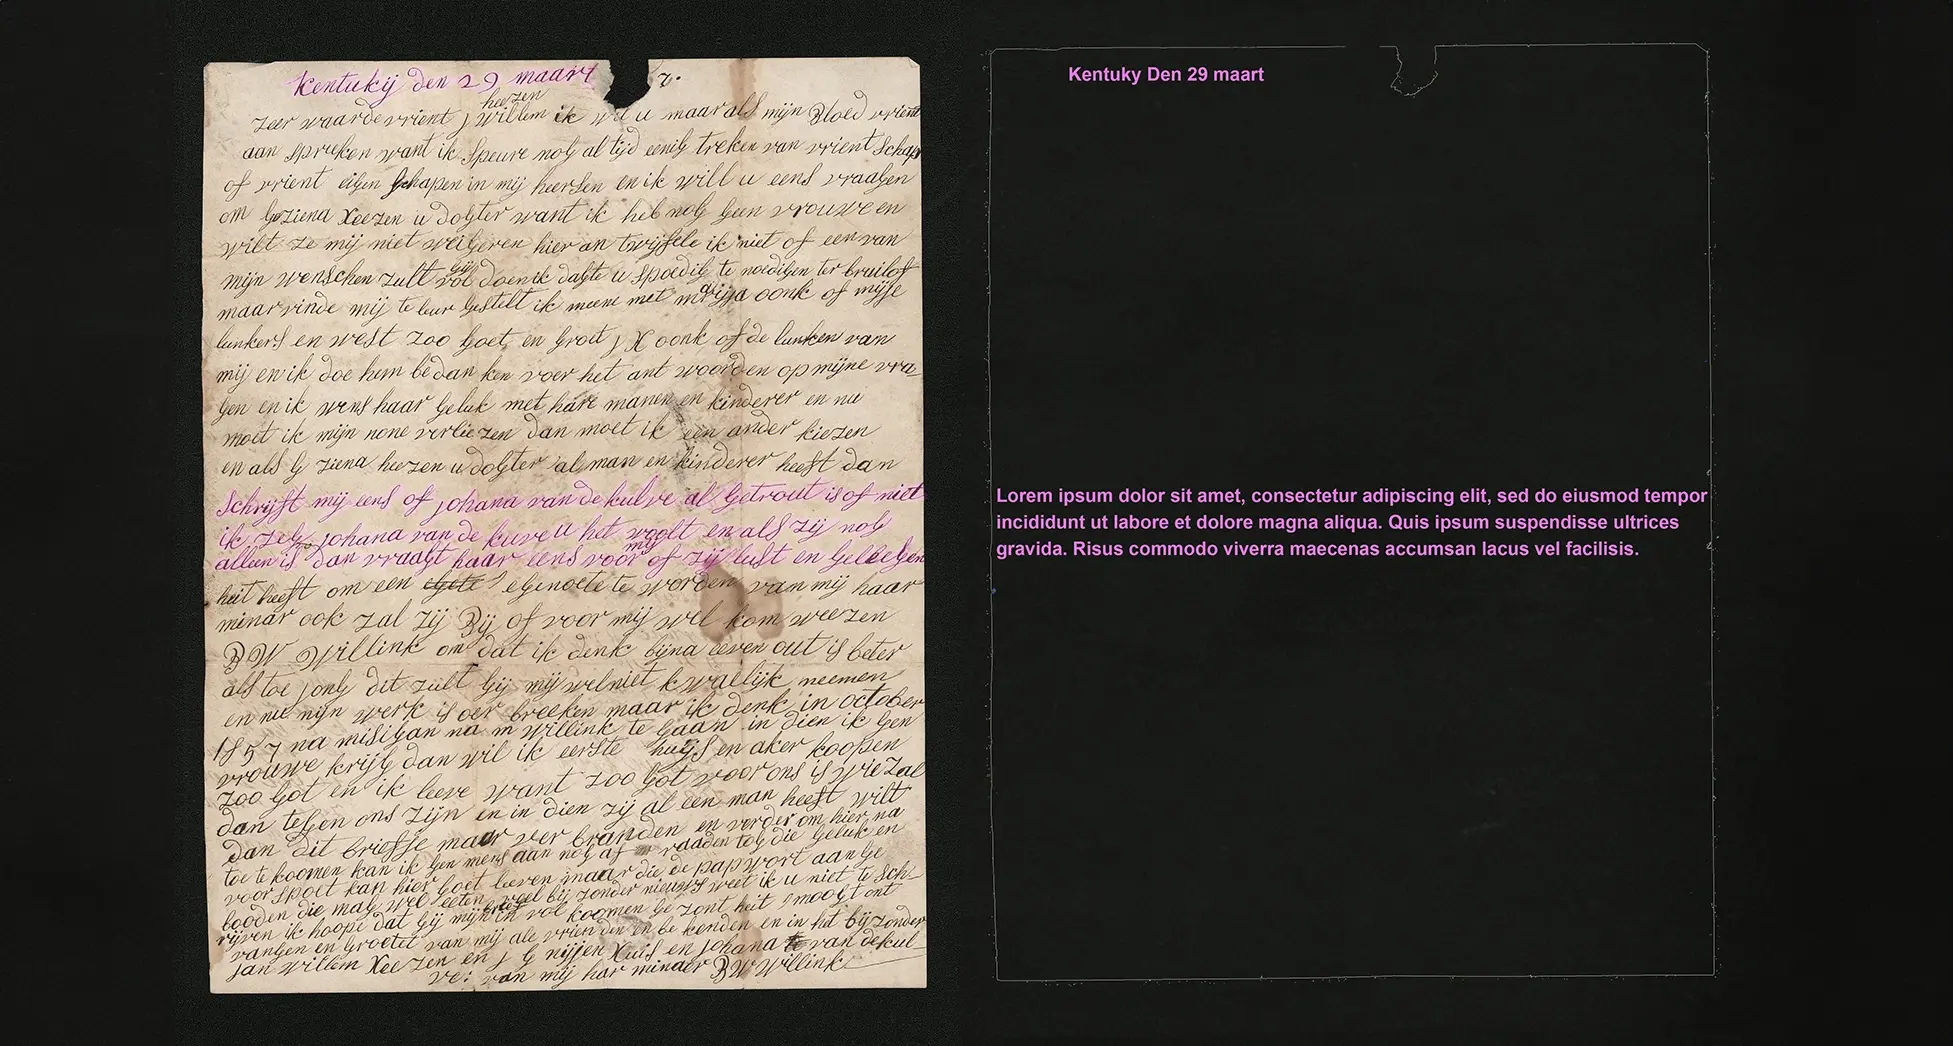 Kentukij den 29 maart 7.
heezen
zeer waarde vrient j willem ik wil u maar als mijn Bloed vrient
aan spreken want ik speure nog al tijd eenig treken van vrient schap
of vrient eigen schapen in mij heersen en ik will u eens vraagen
om Geziena Heezen u dogter want ik heb nog geen vrouwe en
wilt ze mij niet weigeren hier an twijfele ik niet of een van
mijn wenschen zult gij vol doen ik dagte u spoedig te noedigen ter bruiloft
maar vinde mij te leur gestelt ik meene met mrijja oonk of mijse
lunkers en west zoo goet en groet j H oonk of de lunken van
mij en ik doe hem bedan ken voer het ant woorden op mijne vra
gen en ik wens haar geluk met hare manen en kinderer en nu
moet ik mijn none verliezen dan moet ik een ander kiezen
en als G ziena heezen u dogter al man en kinderer heeft dan
schrijft mij eens of johana van de kulve al getrout is of niet
ik zeg johana van de kuve u het voolt en als zij nog
alleen is dan vraagt haar eens voor mij of zij lust en geleegen
heit heeft om een egenoete te worden van mij haar
minar ook zal zij Bij of voor mij wel kom weezen
BW Willink om dat ik denk bijna eeven out is beter
als toe jong dit zult gij mij wel niet kwallijk neemen
en nu mijn werk is oer breeken maar ik denk in october
1857 na misigan na m willink te gaan in dien ik gen
vrouwe krijg dan wil ik eerste huijs en aker koopen
zoo got en ik leeve want zoo got voor ons is wie zal
dan tegen ons zijn en in dien zij al een man heeft wilt
dan dit briefje maar ver branden en verder om hier na
toe te koomen kan ik gen mens aan nog af raaden tog die geluk en
voor spoet kan hier goet leeven maar die de pap wort aan ge
booden die mag wel eeten veel bij zonder nieuws weet ik u niet te sch
rijven ik hoope dat gij mijn in vol koomen ge zont heit moogt ont
vangen en groetet van mij ale vrien den en be kenden en in het bijzonder
jan willem Heezen en j G nijjen Huis en johana van de kul
ve: van mij har minaer BW Willink
Kentuky Den 29 maart
Lorem ipsum dolor sit amet, consectetur adipiscing elit, sed do eiusmod tempor
incididunt ut labore et dolore magna aliqua. Quis ipsum suspendisse ultrices
gravida. Risus commodo viverra maecenas accumsan lacus vel facilisis.